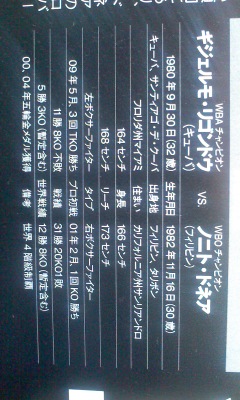 WBA チャンピオン WBO チャンピオン
ギジェルモ・リゴンドウ vs. ノニト・ドネア
(キューバ) (フィリピン)
1980年9月30日(32歳) 生年月日 1982年11月16日(30歳)
キューバ、サンティアゴ・デ・クーバ 出身地 フィリピン、タリボン
フロリダ州マイアミ 住まい カリフォルニア州サンリアンドロ
164センチ 身長 166センチ
168センチ リーチ 173センチ
左ボクサーファイター タイプ 右ボクサーファイター
09年5月、3回1分KO勝ち プロ初戦 01年2月、1回KO勝ち
11勝8KO不敗 戦績 31勝20KO1敗
5勝3KO(暫定含む) 世界戦績 12勝8KO(暫定含む)
00、04年五輪金メダル獲得 備考 世界4階級制覇